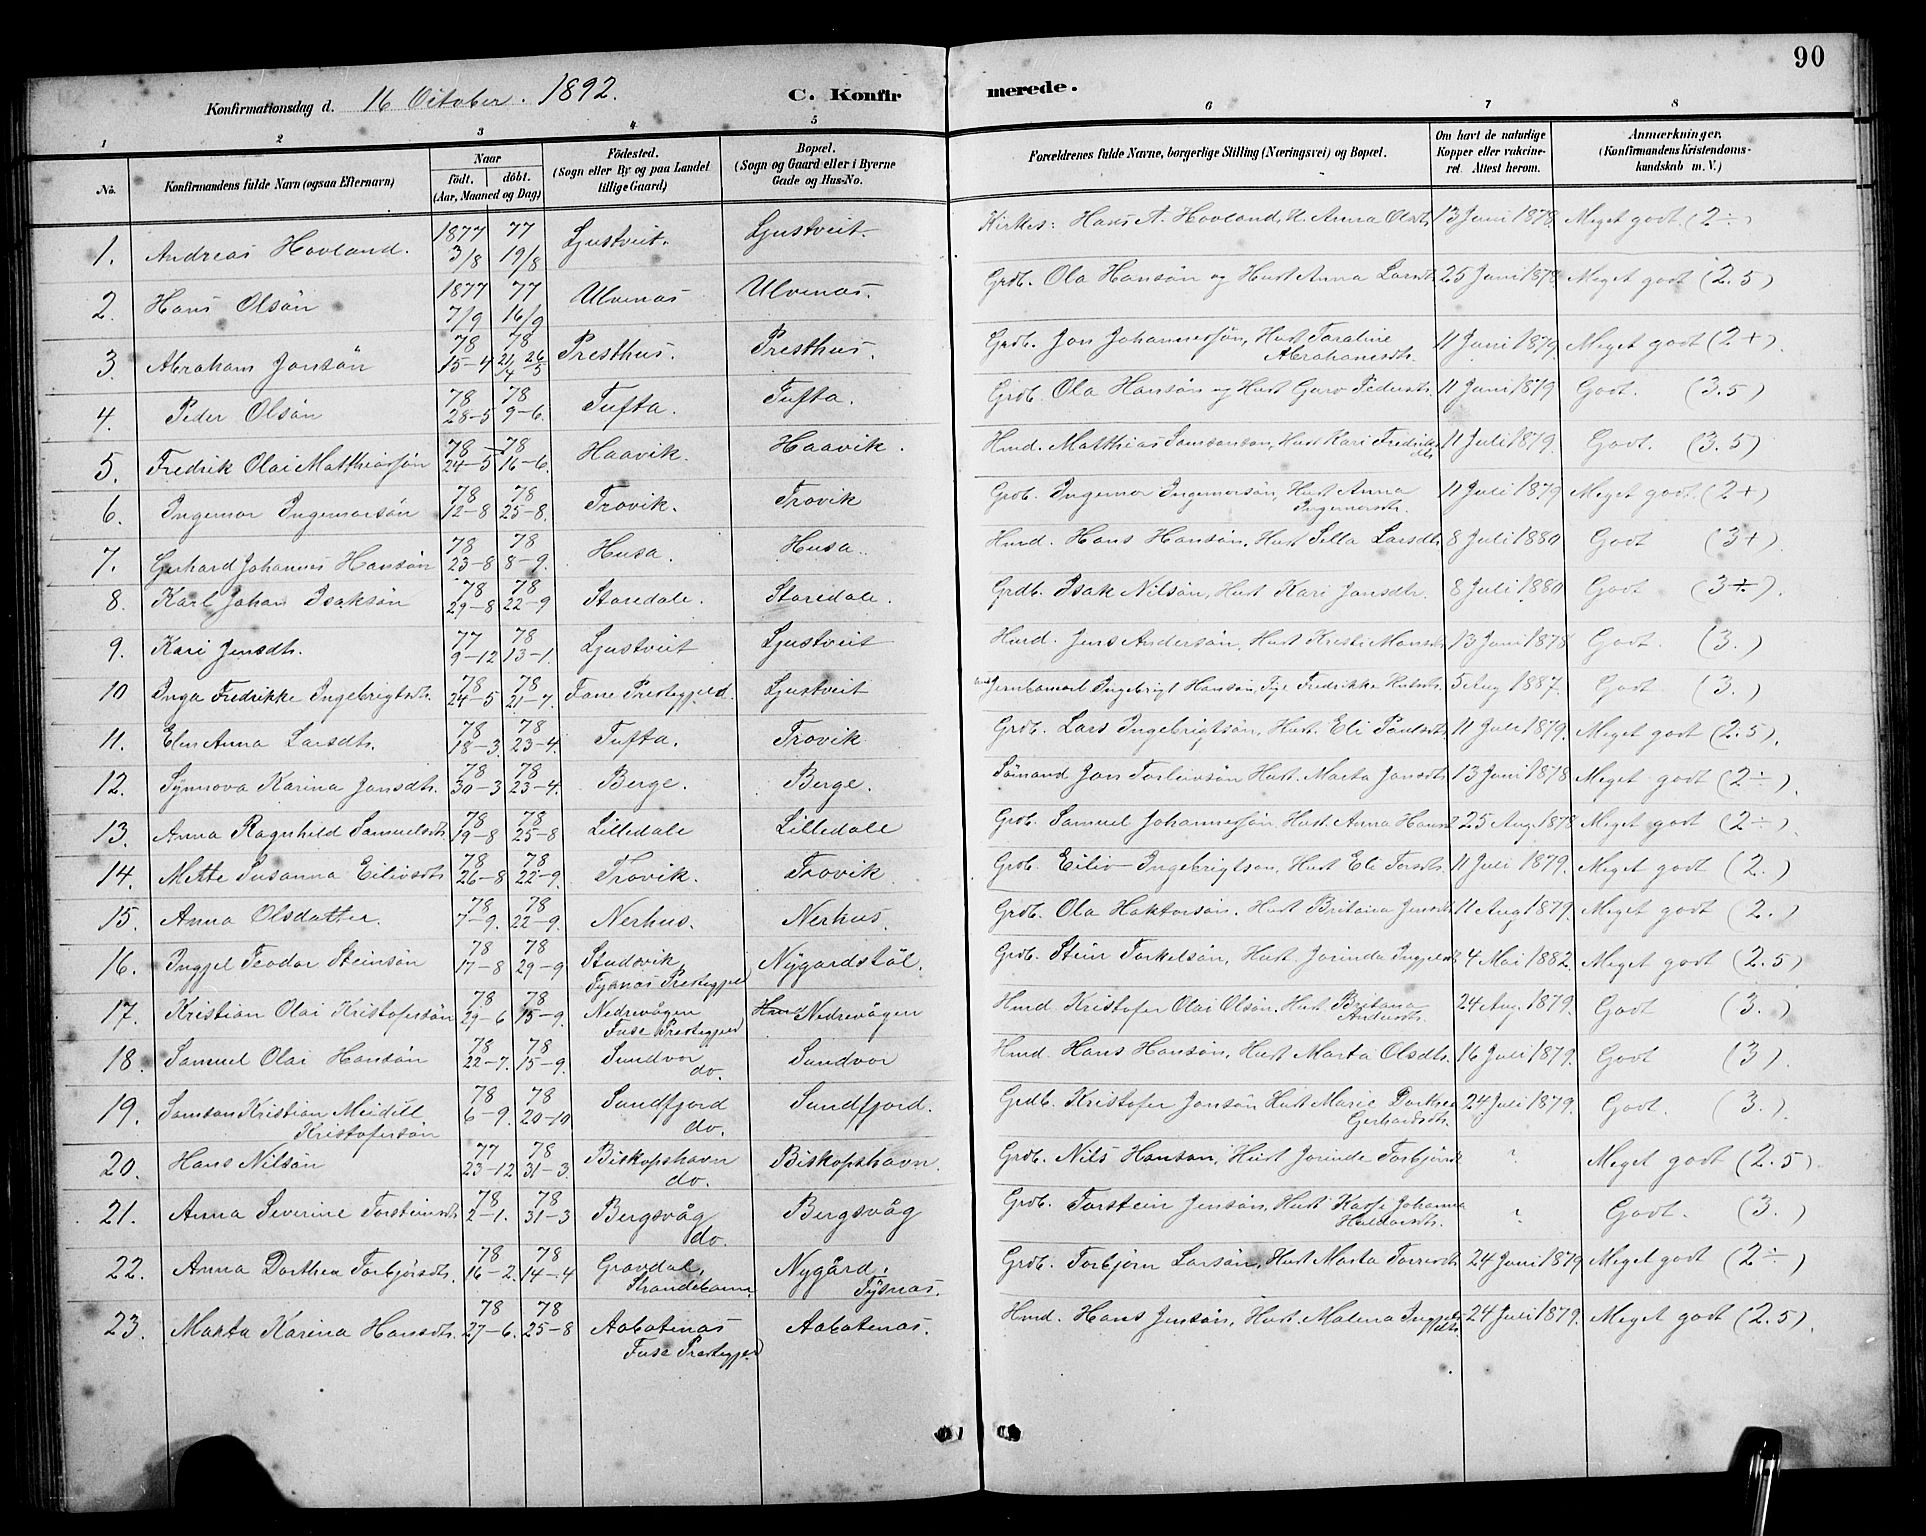 90
Konfirmationsdag d. 16 October. 1892. C. Konfirmerede.
1 2 3 4 5 6 7 8
No. Konfirmandens fulde Navn (ogsaa Efternavn) Naar født, døbt. (Aar, Maaned og Dag) Födested. (Sogn eller By og paa Landet tillige Gaard) Bopæl. (Sogn og Gaard eller i Byerne Gade og Hus-No. Forældrenes fulde Navne, borgerlige Stilling (Næringsvei) og Bopæl. Om havt de naturlige Kopper eller vakcineret. Attest herom. Anmærkninger. (Konfirmandens Kristendomskundskab m. V.)
1. Andreas Hovland. 1877 3/8 77 19/8 Ljustveit. Ljustveit. Kirkes: Hans A. Hovland, H. Anna Olsdt. 13 Juni 1878. Meget godt (2÷)
2. Hans Olsön 1877 7/9 77 16/9 Ulvenas Ulvenas. Grdb. Ola Hansön og Hust. Anna Larsdt. 25 Juni 1878 Meget godt (2.5)
3. Abraham Jonsön 78 15-4 78 21/4 26/5 Presthus. Presthus. Grdb. Jon Johannessön, Hust. Taraline Abrahamsdt. 11 Juni 1879. Meget godt (2+)
4. Peder Olsön 78 28-5 78 9-6. Tufta. Tufta. Grdb. Ola Hansön og Hust Guro Pedersdt. 11 Juni 1879 Godt. (3.5)
5. Fredrik Olai Matthiassön 78 24-5 78 16-6. Haavik. Haavik. Hmd. Matthias Samsonsön, Hust Kari Fredriksdt. 11 Juli 1879. Godt. (3.5)
6. Ingemar Ingemarsön 78 12-8 78 25-8. Trovik. Trovik Grdb. Ingemar Ingemarsön, Hust Anna Ingemarsdt. 11 Juli 1879. Meget godt. (2+)
7. Gerhard Johannes Hansön 78 23-8 78 8-9. Husa. Husa. Hmd. Hans Hansön, Hust Silla Larsdt. 8 Juli 1880 Godt (3+).
8. Karl Johan Isaksön 78 29-8 78 22-9 Storedale. Storedale. Grdb. Isak Nilsön, Hust Kari Jonsdt. 8 Juli 1880 Godt (3÷).
9. Kari Jensdt. 77 9-12 78 13-1. Ljustveit Ljustveit Hmd. Jens Andersön, Hust Kristi Monsdt. 13 Juni 1878 Godt (3.)
10 Inga Fredrikke Ingebrigtsdt. 78 24-5 78 21-7. Fane Prestegjeld. Ljustveit Ingebrigt Hansön, Fredrikke 5 Aug 1887. Godt (3.)
11. Elen Anna Larsdt. 78 18-3 78 23-4. Tufta. Trovik Grdb. Lars Ingebrigtsön, Hust. Eli Paulsdt. 11 Juli 1879. Meget godt (2.5).
12. Synnova Karina Jonsdt. 78 30-3 78 23-4. Berge. Berge. Sömand Jon Torleivsön Hust. Marta Jonsdt. 13 Juni 1878 Meget godt (2÷).
13. Anna Ragnhild Samuelsdt. 78 19-8 78 25-8 Lilledale Lilledale Grdb. Samuel Johannessön Hust. Anna Hansdt 25 Aug. 1878 Meget godt (2÷).
14. Mette Susanna Eilivsdt. 78 26-8 78 22-9. Trovik. Trovik Grdb. Eiliv Ingebrigtsön, Hust Eli Torsdt. 11 Juli 1879. Meget godt (2.)
15. Anna Olsdatter 78 7-9. 78 22-9. Nerhus. Nerhus. Grdb. Ola Haktorsön. Hust Britana Jensdt 11 Aug 1879. Meget godt (2.)
16. Ingjel Teodor Steinsön 78 17-8 78 29-9 Studsvik Tysnas Prestegjeld Nygardstöl. Grdb. Stein Torkelsön, Hust. Jorinda Ingjelsdt 4 Mai 1882. Meget godt (2.5)
17. Kristian Olai Kristofersön 78 29-6 78 15-9. Nedrevågen Fuse Prestegjeld Nedrevågen Hmd. Kristofer Olai Olsön, Hust. Britana Andersdt. 24 Aug. 1879. Godt (3.)
18. Samuel Olai Hansön 78 22-7. 78 15-9. Sundvor do. Sundvor Hmd. Hans Hansön, Hust Marta Olsdt. 16 Juli 1879. Godt (3)
19. Samson Kristian Meidell Kristofersön 78 6-9. 78 20-10 Sundfjord do. Sundfjord. Grdb. Kristofer Jonsön Hust Marie Dorthea Gerhardsdt. 24 Juli 1879. Godt. (3.)
20. Hans Nilsön 77 23-12 78 31-3. Biskopshavn do. Biskopshavn. Grdb. Nils Hanson, Hust Jorinde Torbjörsdt ? Meget godt (2.5)
21. Anna Severine Torsteinsdt 78 2-1. 78 31-3 Bergsvåg do. Bergsvåg Grdb. Torstein Jensön, Hust Johanna Haldorsdt. ? Godt. (3.)
22. Anna Dorthea Torbjörsdt. 78 16-2. 78 14-4 Gravdal, Strandebarm Nygård, Tysnas. Grdb. Torbjörn Larsön, Hust Marta Torresdt 24 Juni 1879 Meget godt (2÷)
23. Makta Karina Hansdt. 78 27-6. 78 25-8 Aabotenas Fuse Prestegjeld Aabotenas. Hmd. Hans Jensön, Hust. Malena Ingjelsdt 24 Juli 1879. Meget godt (2.5).